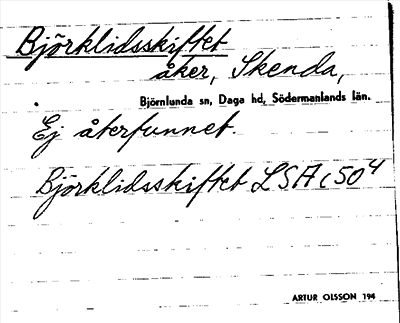 Björklidsskiftet
åker, Skenda,
Björnlunda sn, Daga hd, Södermanlands län.
Ej återfunnet.
Björklidsskiftet LSA c 50⁴
ARTUR OLSSON 194